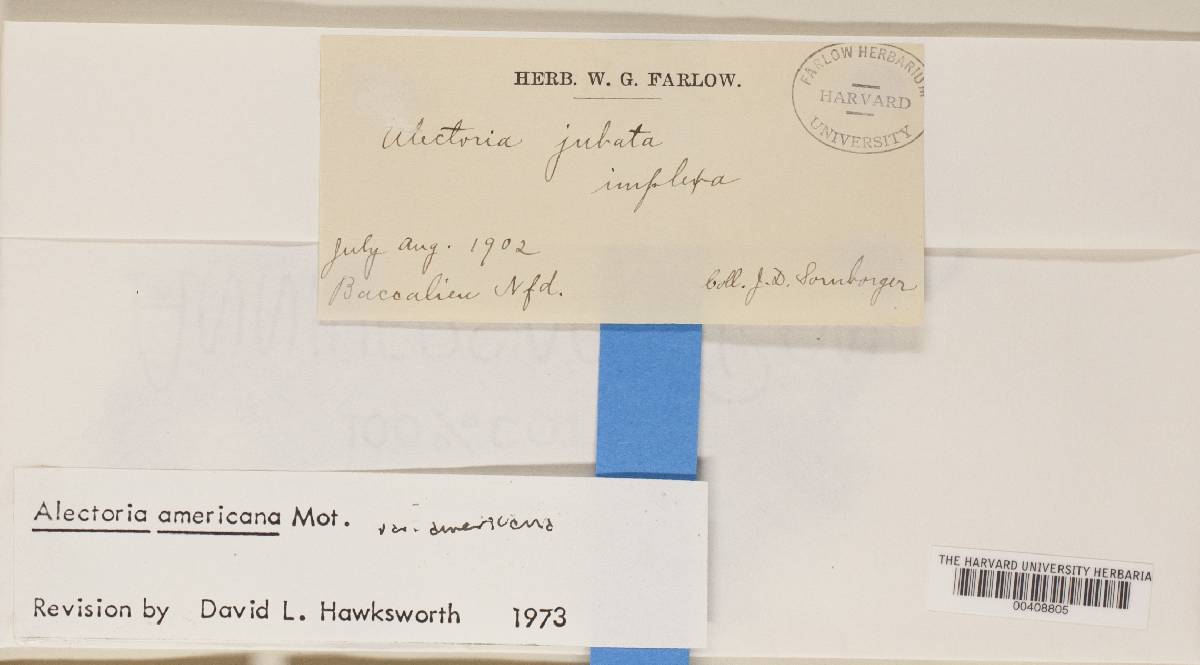 HERB. W. G. FARLOW.
FARLOW HERBARIUM
HARVARD
UNIVERSITY
Alectoria jubata
implexa
July Aug. 1902
Baccalieu Nfd.
Coll. J. D. Sornborger
Alectoria americana Mot. var. americana
Revision by David L. Hawksworth 1973
THE HARVARD UNIVERSITY HERBARIA
00408805